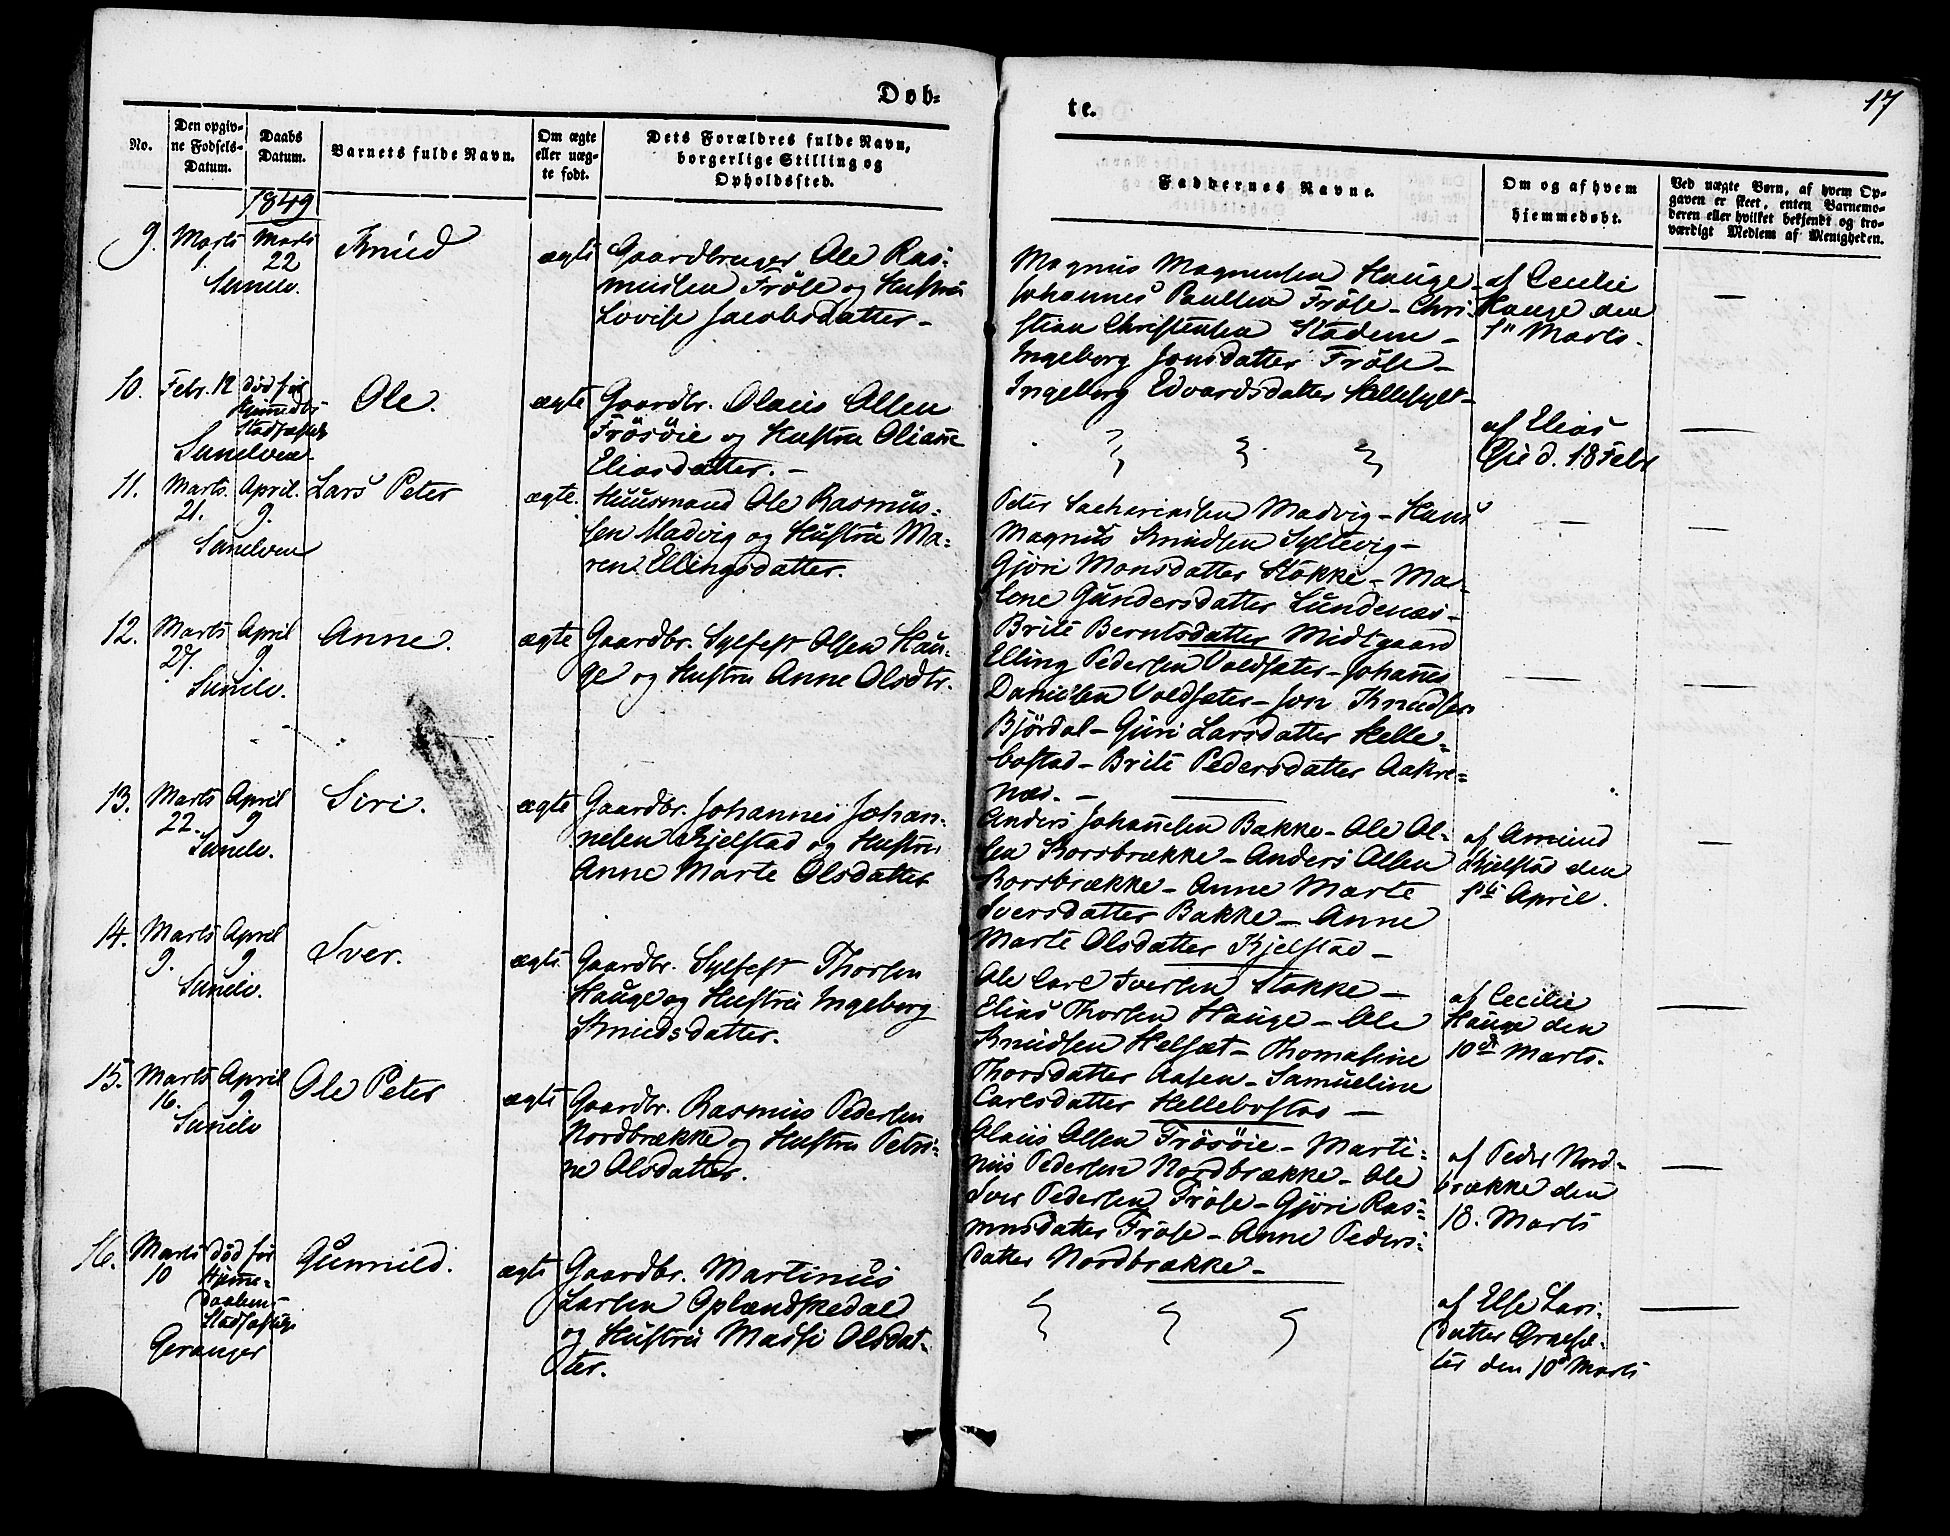 Døb-
te.
17
No.
Den opgiv-
ne Fødsels-
Datum.
Daabs
Datum.
Barnets fulde Navn.
Om ægte
eller uæg-
te født.
Dets Forældres fulde Navn,
borgerlige Stilling og
Opholdssted.
Faddernes Navne.
Om og af hvem
hjemmedøbt.
Ved uægte Børn, af hvem Op-
gaven er skeet, enten Barnemo-
deren eller hvilket bekjendt og tro-
værdigt Medlem af Menigheden.
1849
9. Marts Marts Knud ægte Gaardbruger Ole Ras-
1. 22 musen Fröse og Hustru
Sunelv. Lovise Jacobsdatter -
Magnus Magnussen Hauge -
Johannes Paulsen Fröse - Chri-
stian Christensen Stadem -
Ingeborg Jonsdatter Fröse -
Ingeborg Edvardsdatter Hellesylt -
af Cecilie
Hauge den
1ste Marts.
—
10. Febr. 12 død før Ole. ægte Gaardbr. Olaus Olsen
Hjemmedb:
Stadfæstels
Sunelven.
Frösöie og Hustru Oliane
Eliasdatter. -
af Elias
Gie d. 18 Febr
—
11. Marts. April. Lars Peter ægte. Huusmand Ole Rasmus-
21. 9. sen Madvig og Hustru Ma-
Sunelven ren Ellingsdatter.
Peter Sachariassen Madvig - Hans
Magnus Knudsen Syltevig -
Gjöri Monsdatter Stokke - Ma-
lene Gundersdatter Lundenæs -
Brite Berntsdatter Midtgaard
— —
12. Marts April Anne. ægte Gaardbr. Sylfest Olsen Hau-
27. 9. ge og Hustru Anne Olsdtr.
Sunelv.
Elling Pedersen Voldsæter - Johans
Danielsen Voldsæter - Jon Knudsen
Björdal - Guri Larsdatter Helle-
bostad - Brite Pedersdatter Aakre-
næs. -
— —
13. Marts April Siri. ægte Gaardbr. Johannes Johan-
22. 9 nesen Kjelstad og Hustru
Sunelv. Anne Marte Olsdatter
Anders Johansen Bakke - Ole Ol-
sen Korsbrække - Anders Olsen
Korsbrække - Anne Marte
Iversdatter Bakke - Anne
Marte Olsdatter Kjelstad -
af Amund
Kjelstad den
1ste April.
—
14. Marts April Iver. ægte Gaardbr. Sylfest Thorsen
9. 9 Hauge og Hustru Ingeborg
Sunelv. Knudsdatter.
Ole Carl Iversen Stokke -
Elias Thorsen Hauge - Ole
Knudsen Helsæt - Thomasine
Thorsdatter Aasen - Samueline
Carlsdatter Hellebostad -
af Cecilie
Hauge den
10de Marts.
—
15. Marts April Ole Peter ægte Gaardbr. Rasmus Pedersen
16. 9 Nordbrække og Hustru Petri-
Sunelv ne Olsdatter.
Olaus Olsen Frösöie - Marti-
nus Pedersen Nordbrække - Ole
Iver Pedersen Fröse - Gjöri Ras-
musdatter Fröse - Anne Peders-
datter Nordbrække -
af Peder Nord-
brække den
18. Marts
—
16. Marts død før Gunnild. ægte Gaardbr. Martinus
10 Hjemme-
daabens
Stadfæstelse
Geranger
Larsen Oplændskedal
og Hustru Madsi Olsdat-
ter.
af Else Lars-
datter
den 10de Marts
—